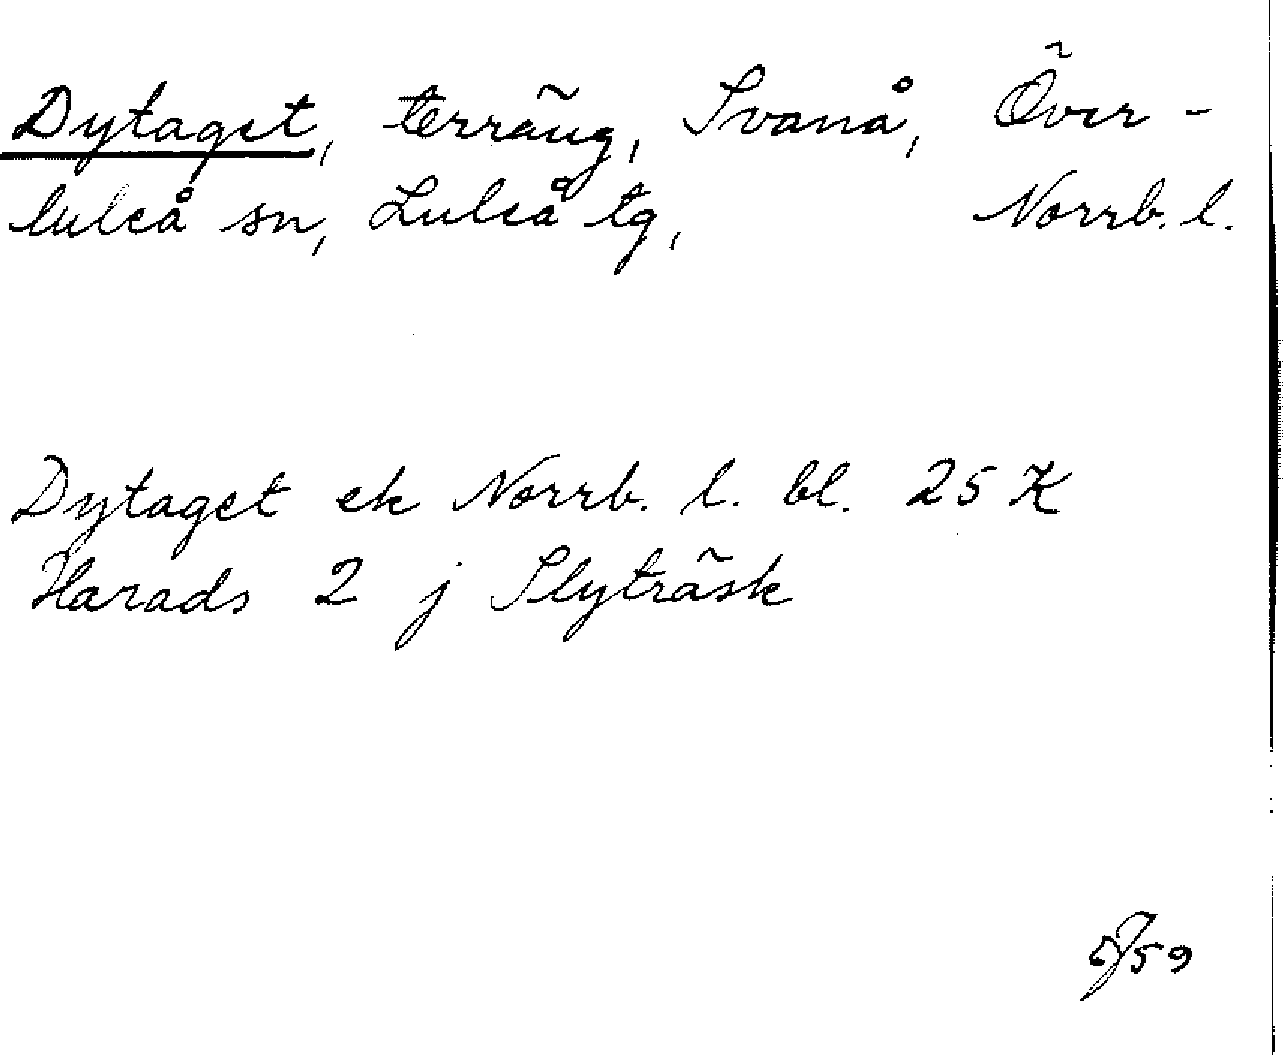 Dytaget, terräng, Svanå, Över-
luleå sn, Luleå tg, Norrb. l.
Dytaget ek Norrb. l. bl. 25 K
Harads 2 j Slyträsk